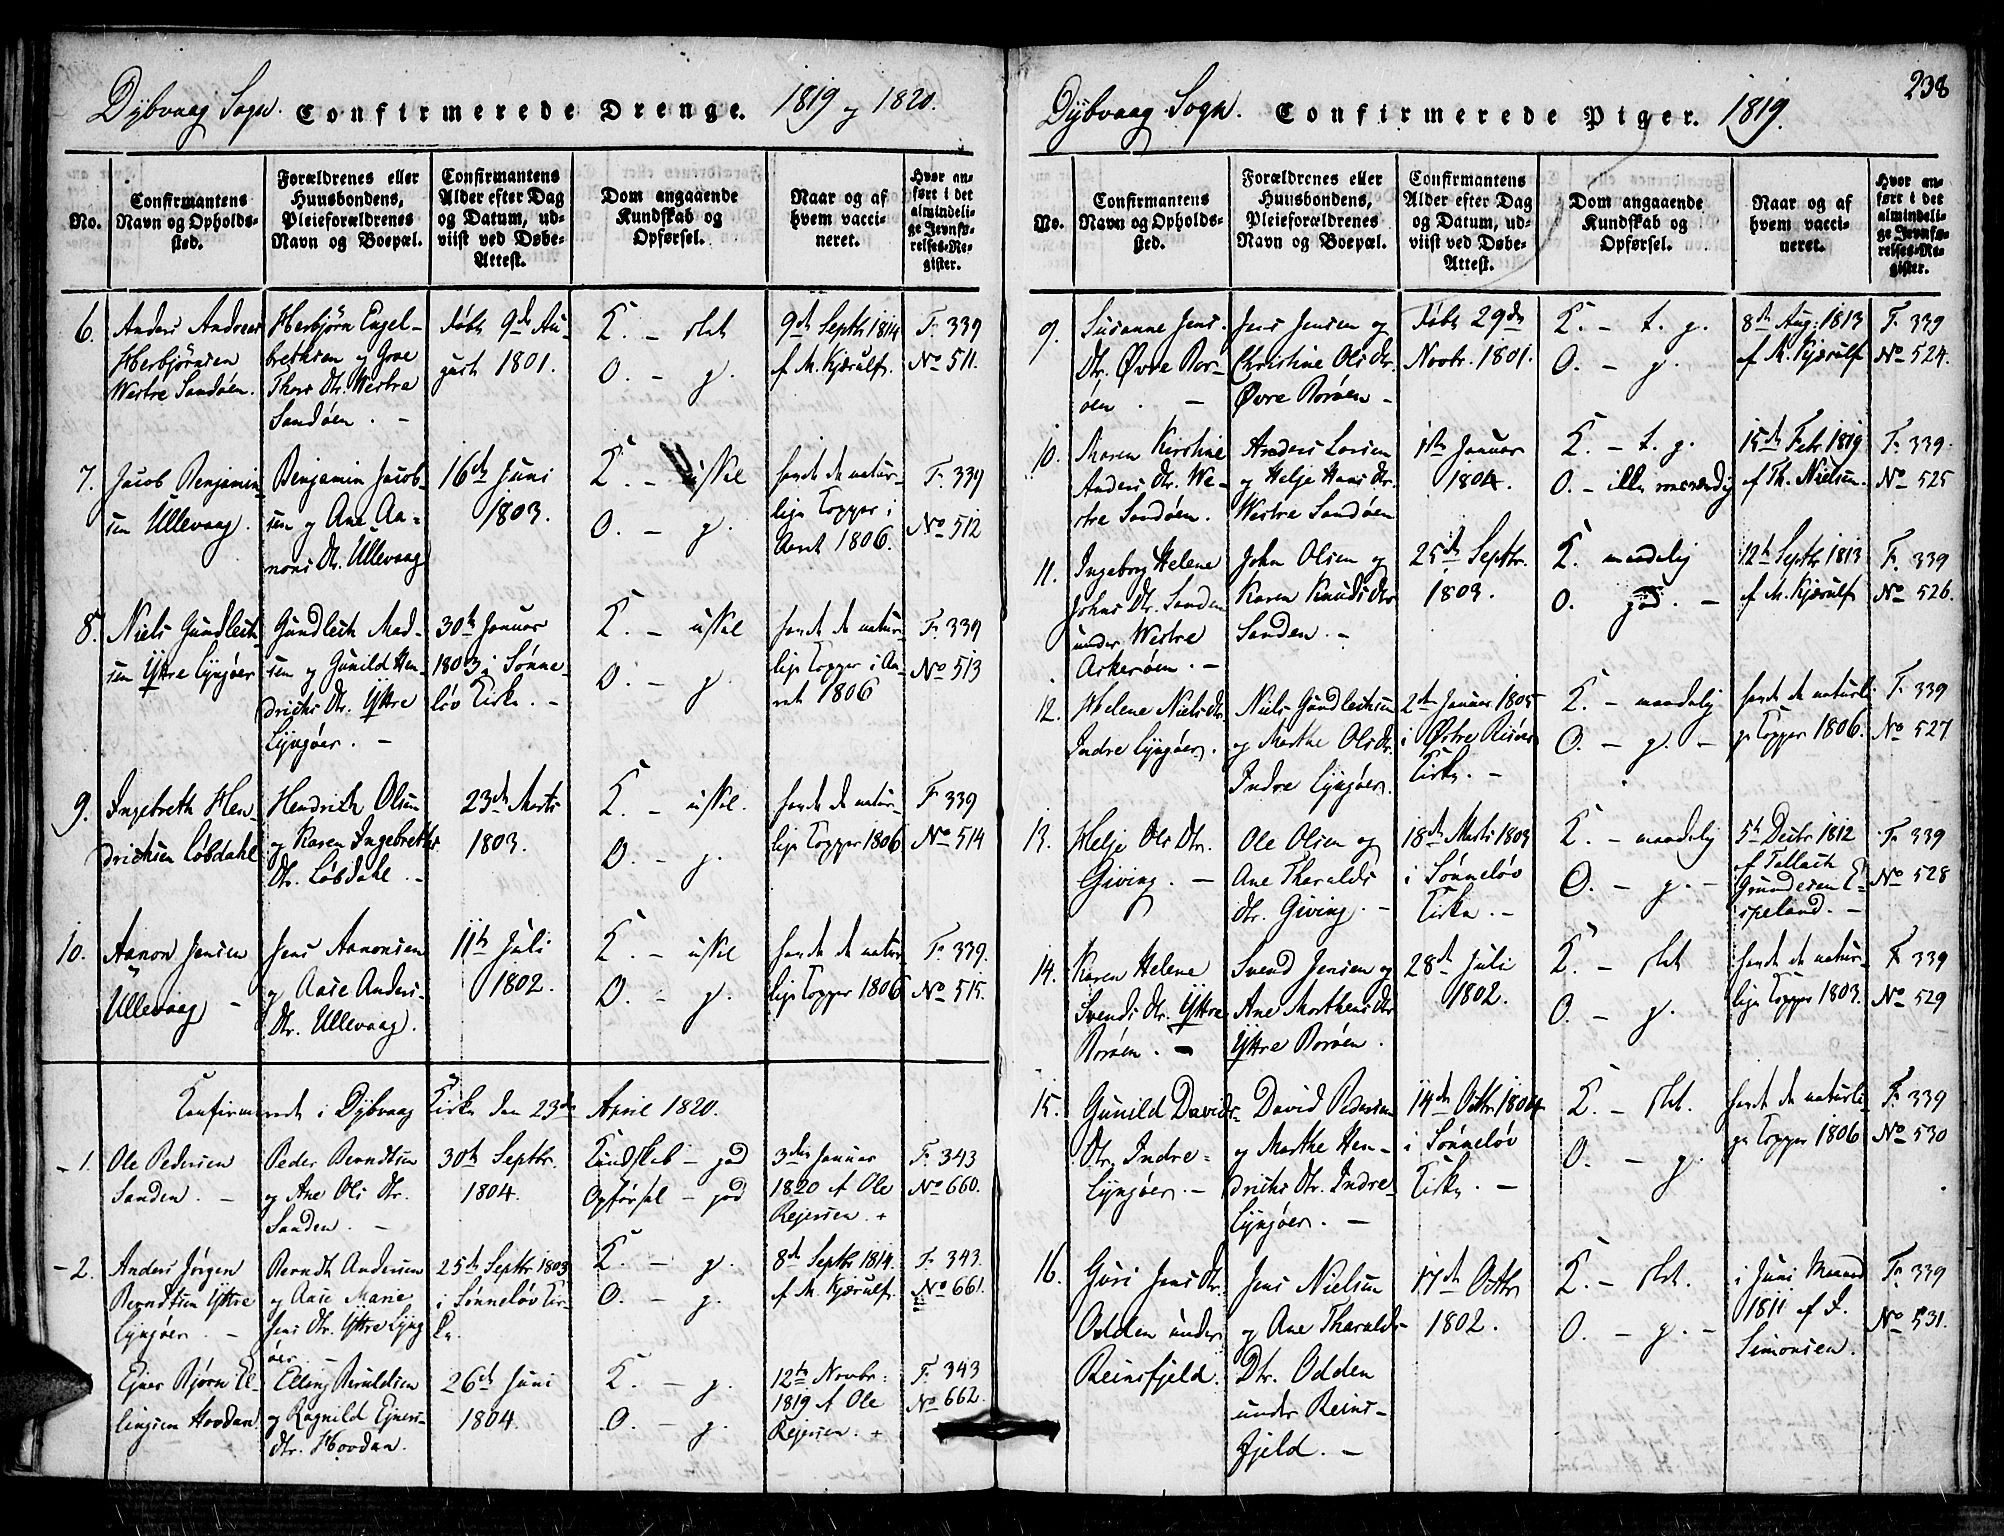 Dybvaag Sogn. Confirmerede Drenge. 1819 og 1820.
No.
Confirmantens
Navn og Opholds-
sted.
Forældrenes eller
Huusbondens,
Pleieforældrenes
Navn og Boepæl.
Confirmantens
Alder efter Dag
og Datum, ud-
viist ved Døbe-
Attest.
Dom angaaende
Kundskab og
Opførsel.
Naar og af
hvem vacci-
neret.
Hvor an-
ført i det
almindeli-
ge Jevnfø-
relses-Re-
gister.
6.
Anders Andreas
Herbjörnsen
Westre Sandøen.
Herbjörn Engel-
brethsen og Groe
Thors Dtr. Westre
Sandøen. -
Født 9de Au-
gust 1801.
K. - slet
O. - g.
9de Septbr 1814
af M. Kjærulf
F. 339
No 511.
7.
Jacob Benjamin-
sen Ullevaag.
Benjamin Jacob-
sen og Ane Aa-
nons Dtr. Ullevaag
16de Juni
1803.
K. - uskel
O. - g.
havde de natur-
lige Kopper i
Aaret 1806.
F. 339
No 512
8.
Niels Gundleik-
sen Yttre Lyngøer
Gundleik Mad-
sen og Gunild Hen-
drichs Dtr. Yttre
Lyngøer. -
30te Januar
1803 i Sønne-
løv Kirke. -
K. - uskel
O. - g.
havde de natur-
lige Kopper i Aa-
ret 1806
F. 339
No 513
9.
Ingebreth Hen-
drichsen Løbdahl
Hendrich Olsen
og Karen Ingebreths
Dtr. Løbdahl. -
23de Marts
1803.
K. - uskel.
O. - g.
havde de natur-
lige Kopper 1806
F 339
No 514
10.
Aanon Jensen
Ullevaag -
Jens Aanonsen
og Aase Anders-
Dtr. Ullevaag.
11te Juli
1802.
K. - uskel
O. - g.
havde de natur-
lige Kopper 1806
F. 339.
No 515.
Confirmerede i Dybvaag Kirke den 23de April 1820.
- 1.
Ole Pedersen
Sanden. -
Peder Berndtsen
og Ane Ols Dtr.
Sanden. -
30te Septbr.
1804.
Kundskab - god
Opførsel - god
3die Januar
1820 af Ole
Rejersen. +
F. 343
No 660.
- 2.
Anders Jørgen
Berndtsen Yttre
Lyngøer. -
Berndt Andersen
og Aase Marie
Jens Dtr. Yttre Lyng
øer. -
25de Septbr 1803
i Sønneløv Kir-
ke.
K. - g.
O. - g.
8de Septbr 1814.
af M. Kjærulf
F. 343.
No 661.
Ejner Bjørn El-
lingsen Hovdan.
Elling Beruldsen
og Ragnild Ejners-
Dtr. Hovdan.
26de Juni
1804.
K. - g.
O. - g.
12te Novbr.
1819 af Ole
Rejersen. +
F. 343
No 662.
238
Dybvaag Sogn. Confirmerede Piger. 1819.
No.
Confirmantens
Navn og Opholds-
sted.
Forældrenes eller
Huusbondens,
Pleieforældrenes
Navn og Boepæl.
Confirmantens
Alder efter Dag
og Datum, ud-
viist ved Døbe-
Attest.
Dom angaaende
Kundskab og
Opførsel.
Naar og af
hvem vacci-
neret.
Hvor an-
ført i det
almindeli-
ge Jevnfø-
relses-Re-
gister.
9.
Susanne Jens.
Dtr. Øvre Bor-
øen. -
Jens Jensen og
Christine Ols Dtr.
Øvre Borøen -
Født 29de
Novbr. 1801.
K. - t. g.
O. - g.
8de Aug: 1813
af M. Kjærulf
F. 339
No 524.
10.
Maren Kirstine
Anders Dtr. We-
stre Sandøen.
Anders Larsen
og Helje Hans Dtr.
Westre Sandøen
1ste Januar
1804.
K. - t. g.
O. - ille
15de Febr 1819
af Th. Nielsen.
F. 339.
No 525
11.
Ingeborg Helene
Johns Dtr. Sanden
under Westre
Askerøen. -
John Olsen og
Karen Knuds Dtr
Sanden. -
25de Septbr.
1803.
K. maadelig
O. god. -
12te Septbr 1813
af M. Kjærulf
F. 339
No 526.
12.
Helene Niels Dtr.
Indre Lyngøer.
Niels Gundleiksen
og Marthe Ols Dtr.
Indre Lyngøer.
2de Januar 1805
i Østre Risøer
Kirke. -
K. - maadelig
O. - g. -
havde de naturli-
ge Kopper 1806.
F. 339
No 527
13.
Helje Ols Dtr.
Giving. -
Ole Olsen og
Ane Tharalds
Dtr. Giving. -
18de Marts 1803
i Sønneløv
Kirke. -
K. - maadelig
O. - g. -
5te Decbr 1812
af Tallack
Gundersen E-
speland. -
F. 339
No 528
14.
Karen Helene
Svends Dtr. Yttre
Borøen. -
Svend Jensen og
Ane Morthens Dtr
Yttre Borøen.
28de Juli
1802.
K. - slet
O. - g.
havde de natur-
lige Kopper 1803.
F 339
No 529
15.
Gunild Davids-
Dtr. Indre-
Lyngøer. -
David Pedersen
og Marthe Hen-
drichs Dtr. Indre-
Lyngøer. -
14de Octbr 1804
i Sønneløv
Kirke. -
K. - slet.
O. - g.
havde de naturli-
ge Kopper 1806
F. 339
No 530
16.
Guri Jens Dtr.
Odden under
Reinsfjeld.
Jens Nielsen
og Ane Tharalds-
Dtr. Odden
under Reins-
fjeld. -
17de Octbr
1802.
K. - slet.
O. - g. -
i Juni Maaned
1811 af J.
Simonsen.
F. 339
No 531.